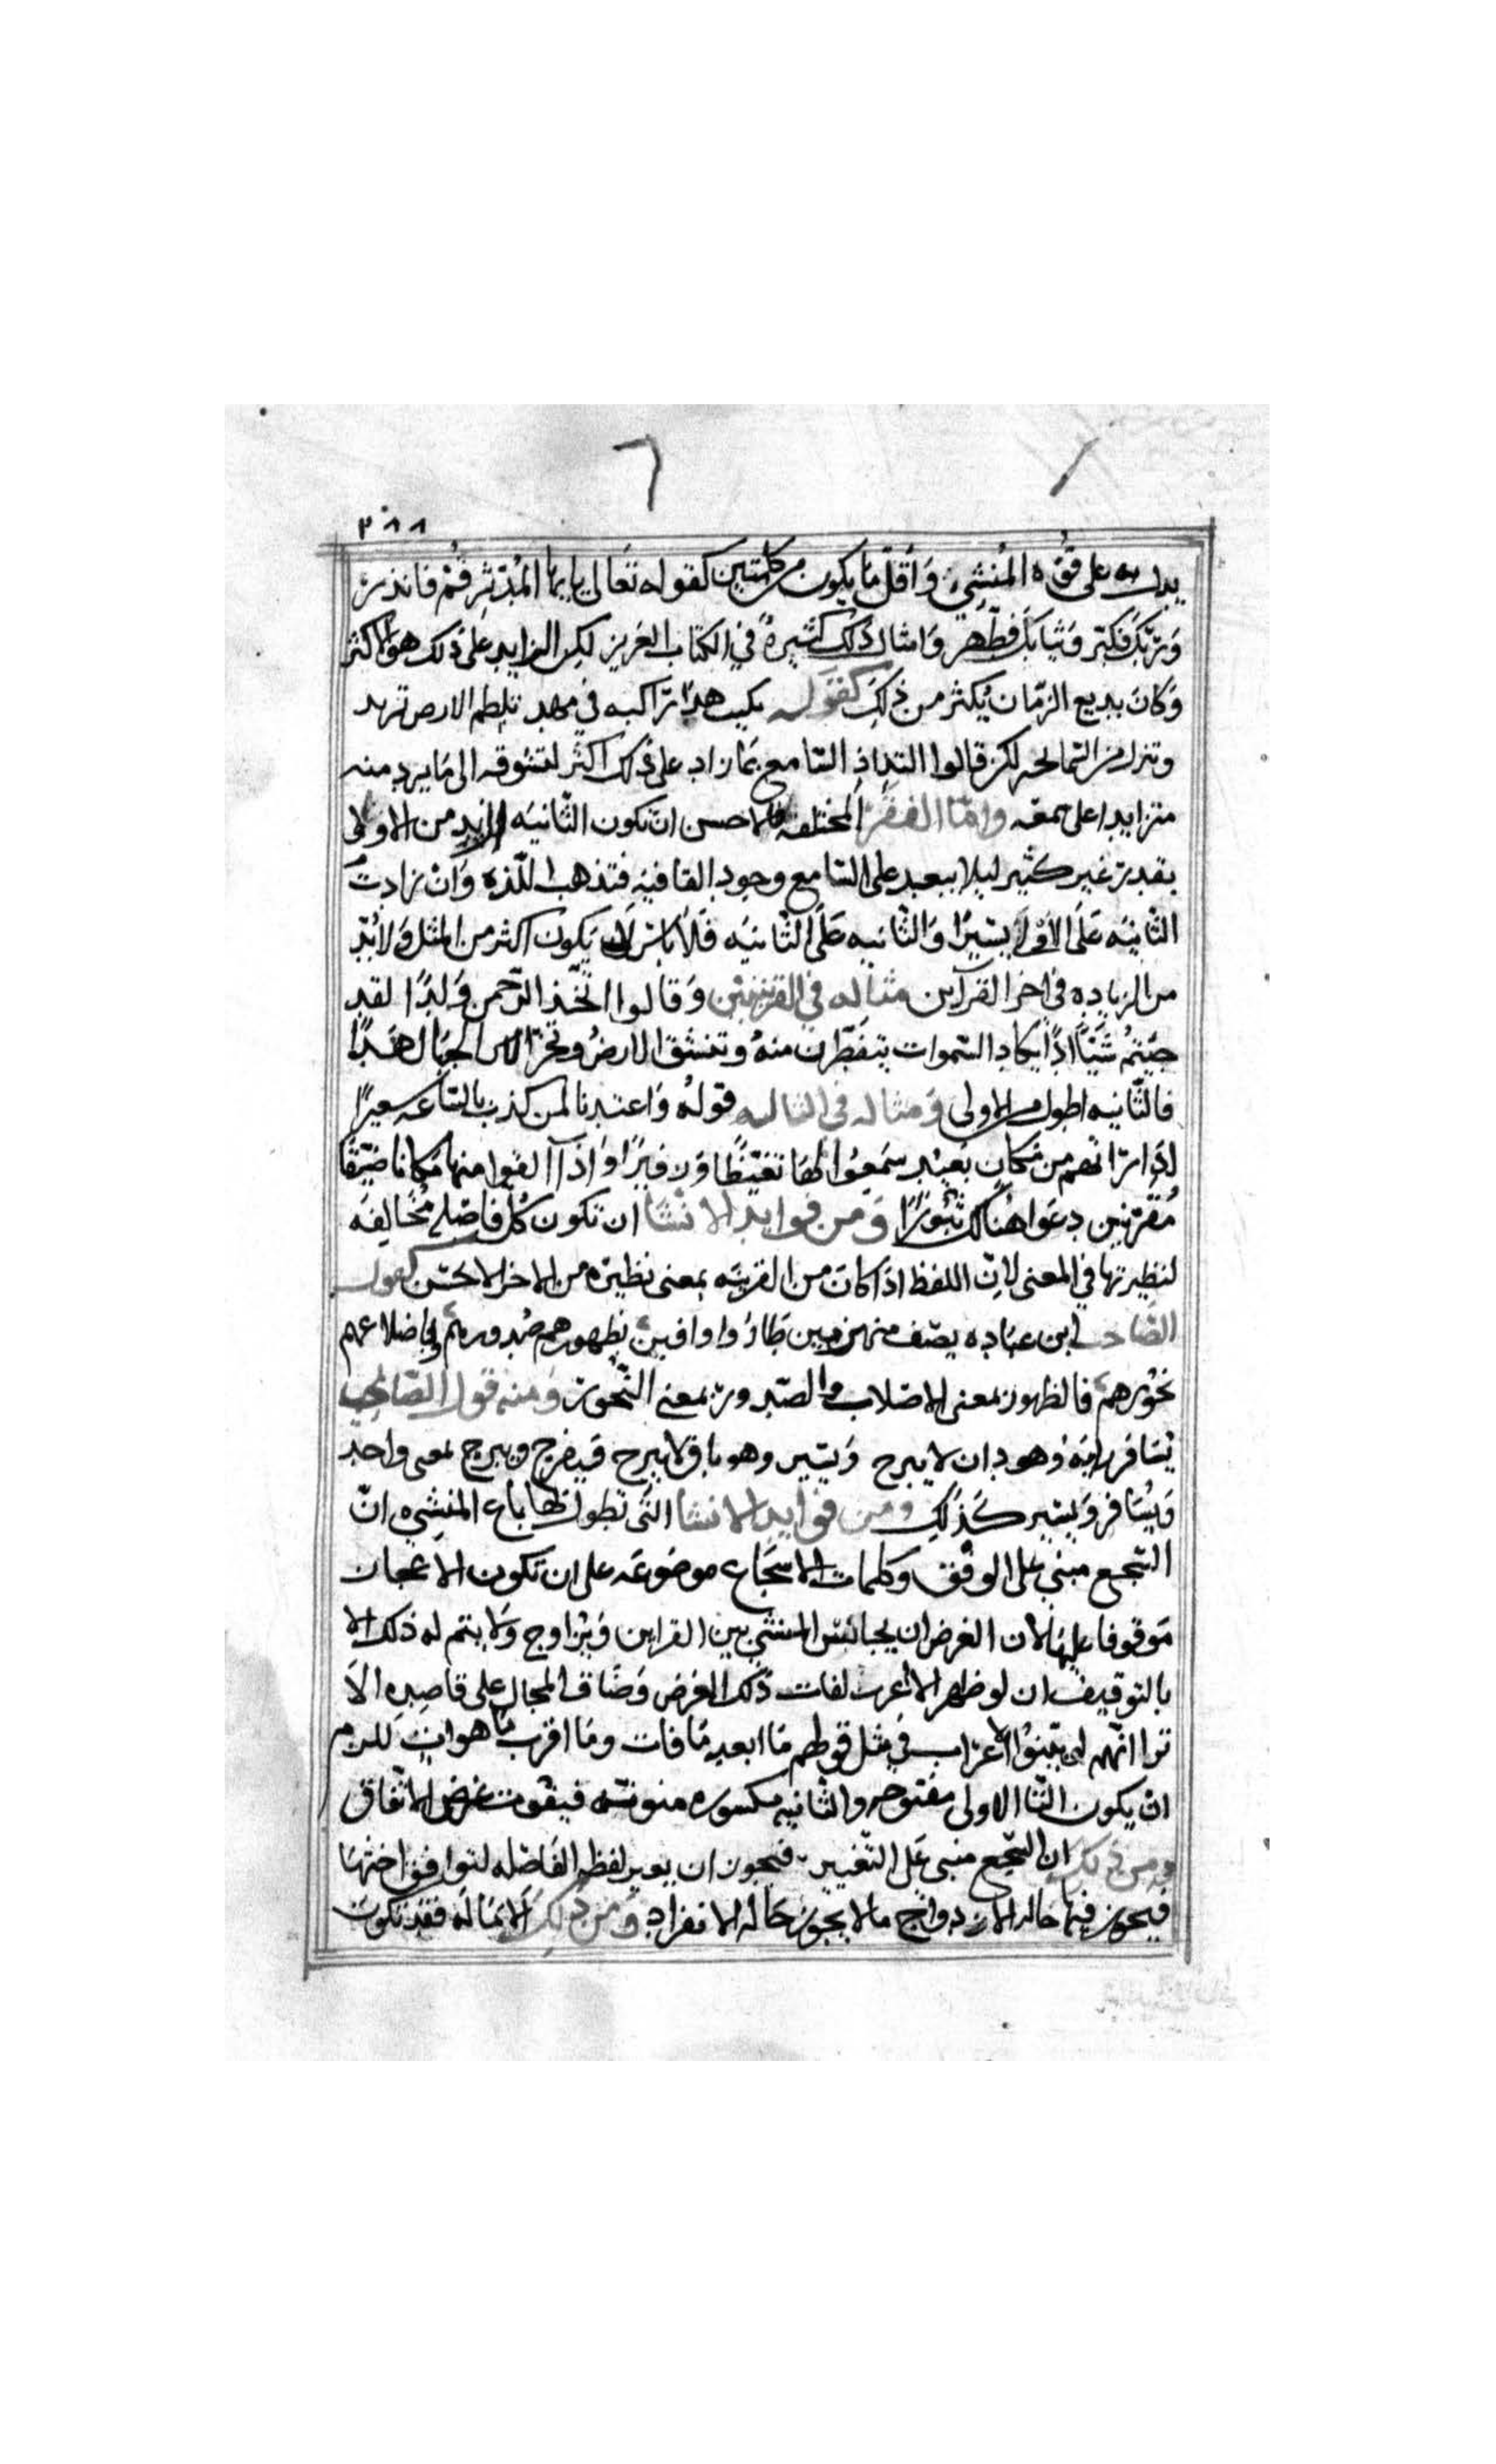 ٣٨٨
يدل به على قوة المنشي وَأقلّ مَا يكون من كلمتين كقوله تَعَالى يا ايها المُدّثِر قُمْ فانذرْ
وَرَبّكَ فكبّر وَثيابَكَ فطَهّر وَامثال ذلك كثيرةٌ في الكتاب العَزيز لكن الزايد عَلى ذلك هو الاكثر
وَكانَ بديع الزمان يُكثر من ذلِكَ كقوله كميت هدّا تراكبه في مهد تلطم الارض بزبد
وتنزل من السّما لحبر لكن قالوا التذاذ السّامع بمَا زاد على ذلك اكثر لتشوقه الى مَا يرد منه
متزايدا على سمعه وامّا الفقَر المختلفه فالاحسن انْ تكون الثّانيَه ازيد من الاولى
بقدر غير كثير ليلا يبعد على السّامع وجود القافيَه فتذهب اللّذه وَانْ زادتْ
الثّانيَه عَلَى الاوْلَى يَسِيرًا وَالثّانيه عَلَى الثّانيَه فَلاَ بَاسَ لان يَكون اكثر من المثل وَلا بُدّ
من الزياده في اخر القرآين مثاله في القرينتين وَقالوا اتّخذ الرّحمن وَلدًا لقد
جيتمْ شَيْئًا ادًّا يكاد السّموات يتفطّرن منهُ وتنشق الارضُ وتخرّ الجبَال هَدًّا
فالثّانيه اطول من الاولى وَمثاله في الثالثه قولهُ وَاعتدنا لمن كذب بالسّاعَه سعيرًا
اذا راتهم من مَكان بعيْد سَمعُوا لهَا تغيّظًا وَزفيرًا وَاذا القوا منها مكانا ضيّقًا
مُقرّنين دعَوا هُنالك ثبُورًا وَمن فوايد الانشا ان تكون كُل فَاصله مُخَالِفَه
لنظيرتها في المعنى لانّ اللفظ اذا كانَ من القرينَه بمعنى نظيره من الاخر الاحسَن كقول
الصّاحب ابن عبّاده يصف منهزمين طَارُوا واقين بظهورهم صُدورهمْ وباضلاعهم
نحُورهمْ فالظهور بمعنى الاصلاب والصّدور بمعنى النّحور وَمنه قول الصّابي
يُسَافر رايهُ وَهو دان لا يبرح وَيسير وهو باق لا يبرح فيبرح ويبرح بمعنى واحد
وَيُسَافر وَيسير كذلِك ومن فوايد الانشا التَى تطول لها باع المنشِي انّ
السّجع مبني على الوقف وكلمات الاسجَاع موضوعَه على ان تكون الاعجاز
مَوقوفا عليهَا لان الغرض ان يجانس المنشي بين القراين وَيُزاوج وَلا يتم له ذلك الا
بالتوقيف ان لو ظهر الاعراب لفات ذلك الغرض وَضَاق المجال على قاصِدِه الاَ
ترا انّهم لو بيّنوا الاعراب في مثل قولهم مَا ابعد مَا فات ومَا اقرب مَا هو اتٍ للزم
ان يكون التّا الاولى مفتوحه والثّانيه مكسوره منونَه فيفُوت غرض الاتّفاق
ومن ذلك ان السّجع مبني عَلى التّغيير فيجوز ان يعير لفظ الفَاصِله لتوافق اختهَا
فيجوز فيها حاله الازدواج ما لا يجوز حَاله الانفراد وَمن ذلِكَ الامَالَه فقد تكون